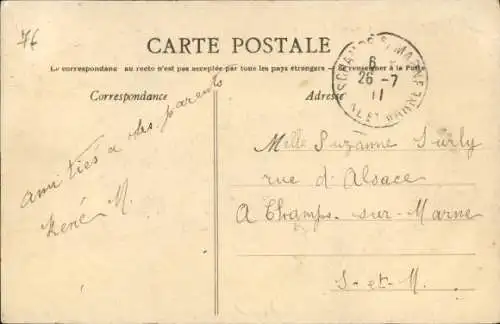 76
CARTE POSTALE
La correspondance au recto n'est pas acceptée par tous les pays étrangers — Se renseigner à la Poste
Correspondance
Adresse
6
26 - 7
11
amitiés à tes parents
René M.
Melle Suzanne Surly
rue d'Alsace
A Champs-sur-Marne
S-et-M.